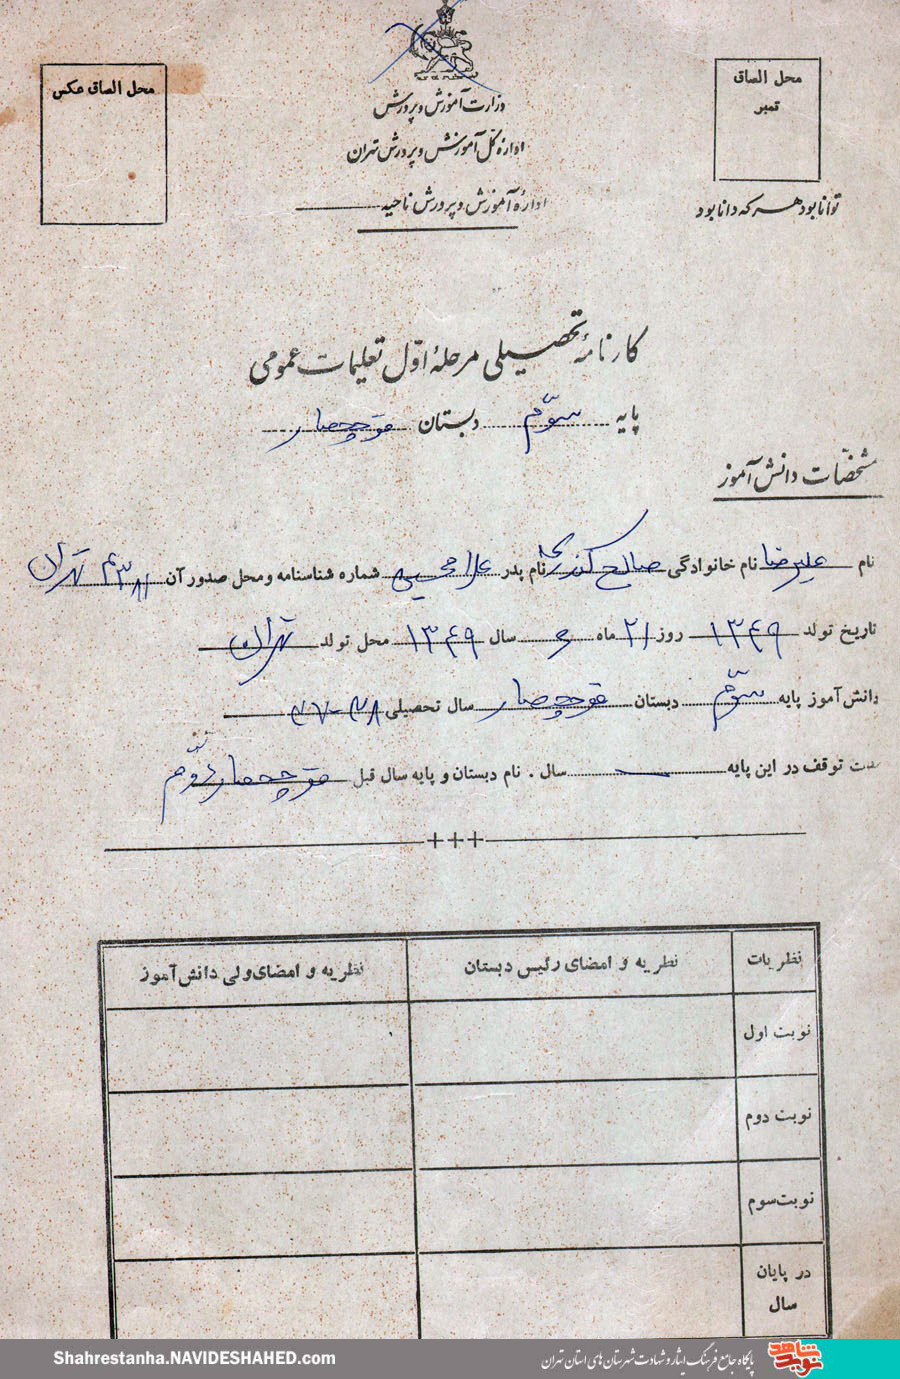 محل الصاق عکس
محل الصاق
تمبر
وزارت آموزش و پرورش
اداره کل آموزش و پرورش تهران
اداره آموزش و پرورش ناحیه
توانا بود هر که دانا بود
کارنامهٔ تحصیلی مرحلهٔ اول تعلیمات عمومی
پایه سوّم دبستان قوچحصار
مشخصّات دانش آموز
نام علیرضا نام خانوادگی صالح نام پدر غلامحسین شماره شناسنامه و محل صدور آن تهران
تاریخ تولد ۱۳۴۹ روز ۲۱ ماه ۶ سال ۱۳۴۹ محل تولد تهران
دانش آموز پایه سوّم دبستان قوچحصار سال تحصیلی ۳۸-۳۷
توقف در این پایه سال . نام دبستان و پایه سال قبل قوچحصار دوّم
نظریات
نظریه و امضای رئیس دبستان
نظریه و امضای ولی دانش آموز
نوبت اول
نوبت دوم
نوبت سوم
در پایان
سال
Shahrestanha.NAVIDESHAHED.com
پایگاه جامع فرهنگ ایثار و شهادت شهرستان های استان تهران
نوید شاهد